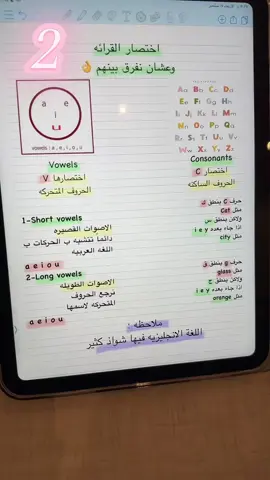 2
اختصار القرائه
وعشان نفرق بينهم 👌
a e
i
u
vowels : a , e , i , o , u
Aa Bb Cc Dd
Ee Ff Gg Hh
Ii Jj Kk Ll Mm
Nn Oo Pp Qq
Rr Ss Tt Uu Vv
Ww Xx Yy Zz
Vowels
اختصارها V
الحروف المتحركه
Consonants
اختصار C
الحروف الساكنه
1-Short vowels
الاصوات القصيره
دائما تتشبه ب الحركات ب
اللغه العربيه
a e i o u
2-Long vowels
الاصوات الطويله
نرجع الحروف
المتحركه لاسمها
a e i o u
حرف C ينطق ك
مثل Cat
ولاكن ينطق س
اذا جاء بعده i e y
مثل city
حرف g ينطق ق
مثل glass
ولاكن ينطق ج
اذا جاء بعده i e y
مثل orange
ملاحظه :
اللغة الانجليزيه فيها شواذ كثير